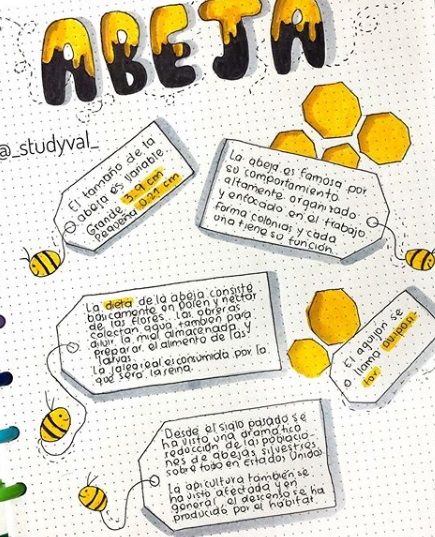 ABEJA
@_studyval_
El tamaño de la
abeja es variable.
Grande 3.9 cm
Pequeña 0.21 cm
La abeja es famosa por
su comportamiento
altamente organizado
y enfocado en el trabajo
forma colonias y cada
una tiene su función.
La dieta de la abeja consiste
básicamente en polen y néctar
de las flores. Las obreras
colectan agua también para
diluir la miel almacenada y
preparar el alimento de las
larvas.
La jalea real es consumida por la
que será la reina.
El aquijon se
llama
Desde el siglo pasado se
ha visto una dramática
reducción de las poblacio-
nes de abejas silvestres
sobre todo en Estados Unidos
La apicultura también se
ha visto afectada y en
general el descenso se ha
producido por el habitat.